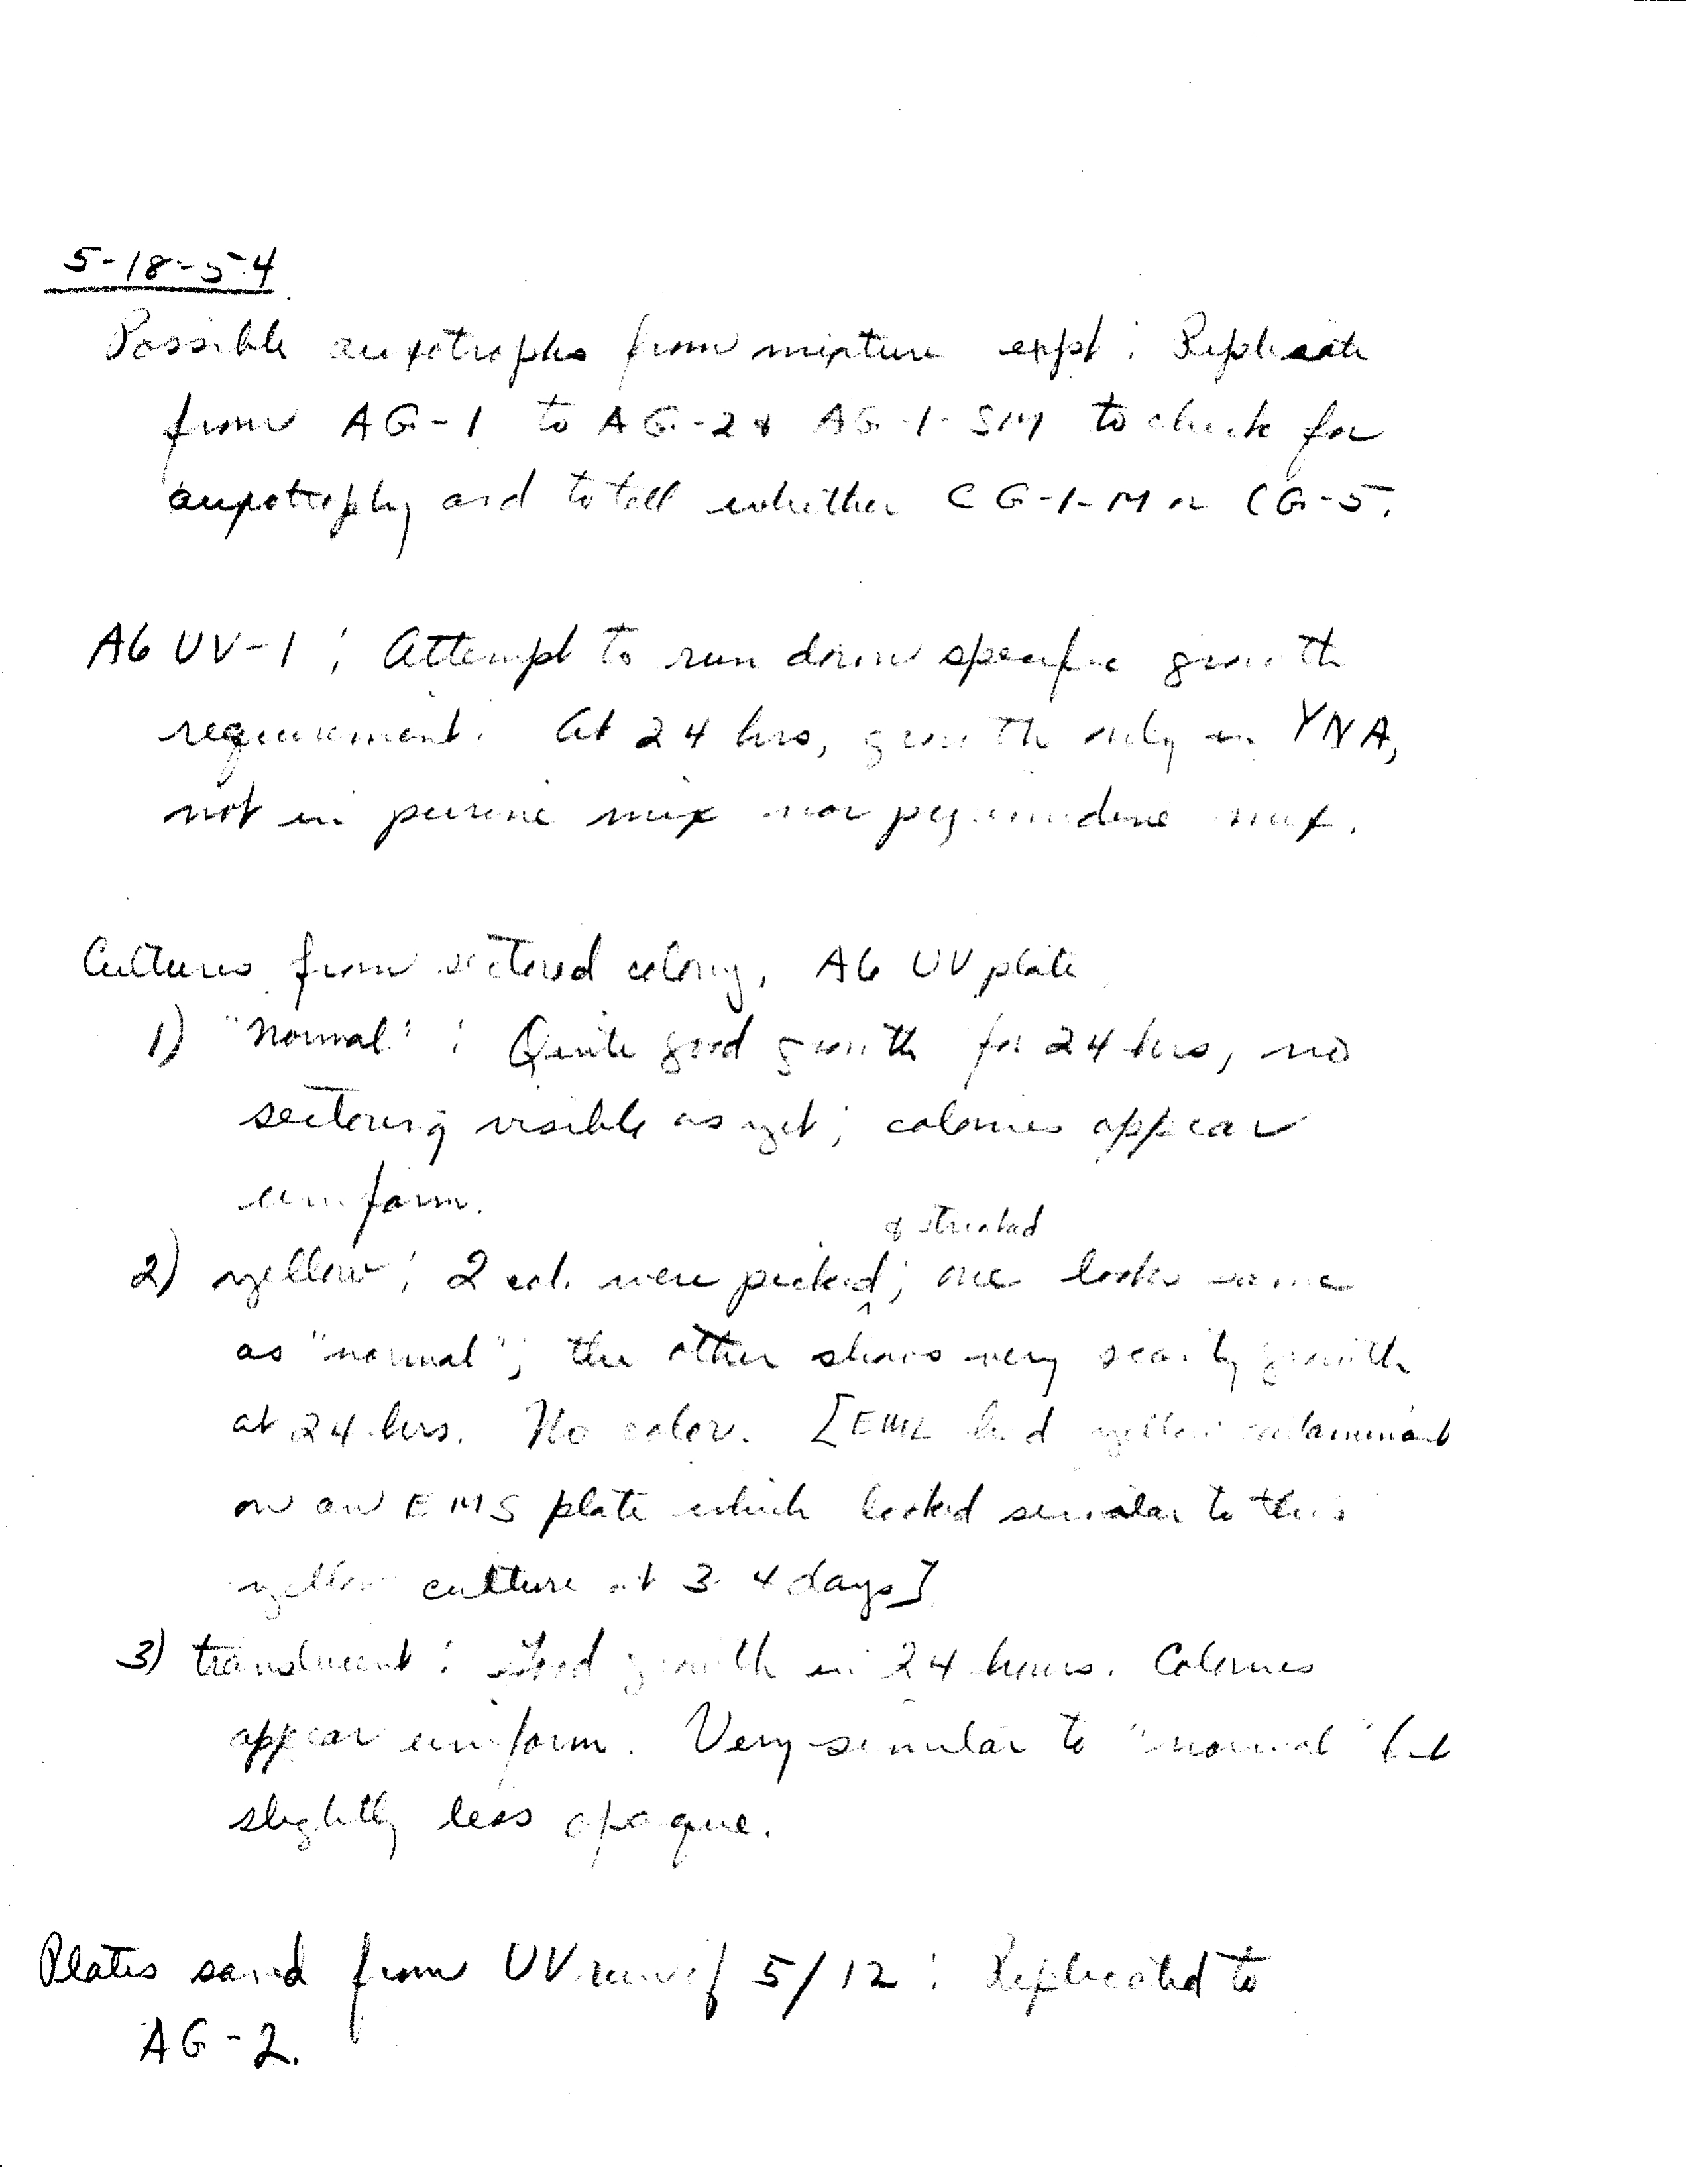 5-18-54
Possible auxotrophs from mixture expt: Replicate
from AG-1 to AG-2 & AG-1-SM to check for
auxotrophy and to tell whether CG-1-M or CG-5.
A6 UV-1: Attempt to run down specific growth
requirement. At 24 hrs, growth only in YNA,
not in purine mix nor pyrimidine mix.
Cultures from sectored colony, A6 UV plate
1) "Normal": Quite good growth for 24 hrs, no
sectoring visible as yet; colonies appear
uniform.
& streaked
2) yellow: 2 col. were picked; one looks same
as "normal"; the other shows very scanty growth
at 24 hrs. No color. [EML had yellow contaminant
on an EMS plate which looked similar to this
yellow culture at 3-4 days]
3) translucent: Good growth in 24 hours. Colonies
appear uniform. Very similar to "normal" but
slightly less opaque.
Plates saved from UV run of 5/12: Replicated to
AG-2.